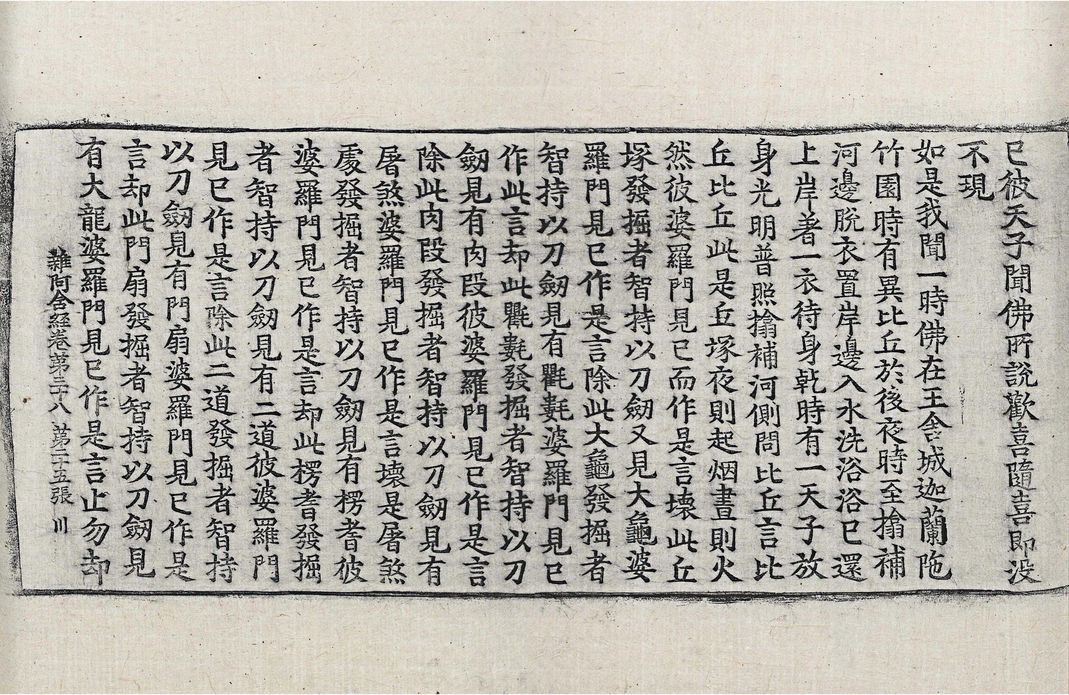 已彼天子聞佛所說歡喜隨喜即没
不現
如是我聞一時佛在王舍城迦蘭陁
竹園時有異比丘於後夜時至搚補
河邊脫衣置岸邊入水洗浴浴已還
上岸著一衣待身乹時有一天子放
身光明普照搚補河側問比丘言比
丘比丘此是丘塚夜則起烟晝則火
然彼婆羅門見已而作是言壞此丘
塚發掘者智持以刀劒又見大龜婆
羅門見已作是言除此大龜發掘者
智持以刀劒見有㲲㲪婆羅門見已
作此言却此㲲㲪發掘者智持以刀
劒見有肉段彼婆羅門見已作是言
除此肉段發掘者智持以刀劒見有
屠煞婆羅門見已作是言壞是屠煞
處發掘者智持以刀劒見有楞耆彼
婆羅門見已作是言却此楞耆發掘
者智持以刀劒見有二道彼婆羅門
見已作是言除此二道發掘者智持
以刀劒見有門扇婆羅門見已作是
言却此門扇發掘者智持以刀劒見
有大龍婆羅門見已作是言止勿却
雜阿含經卷第三十八 第二十五張 川